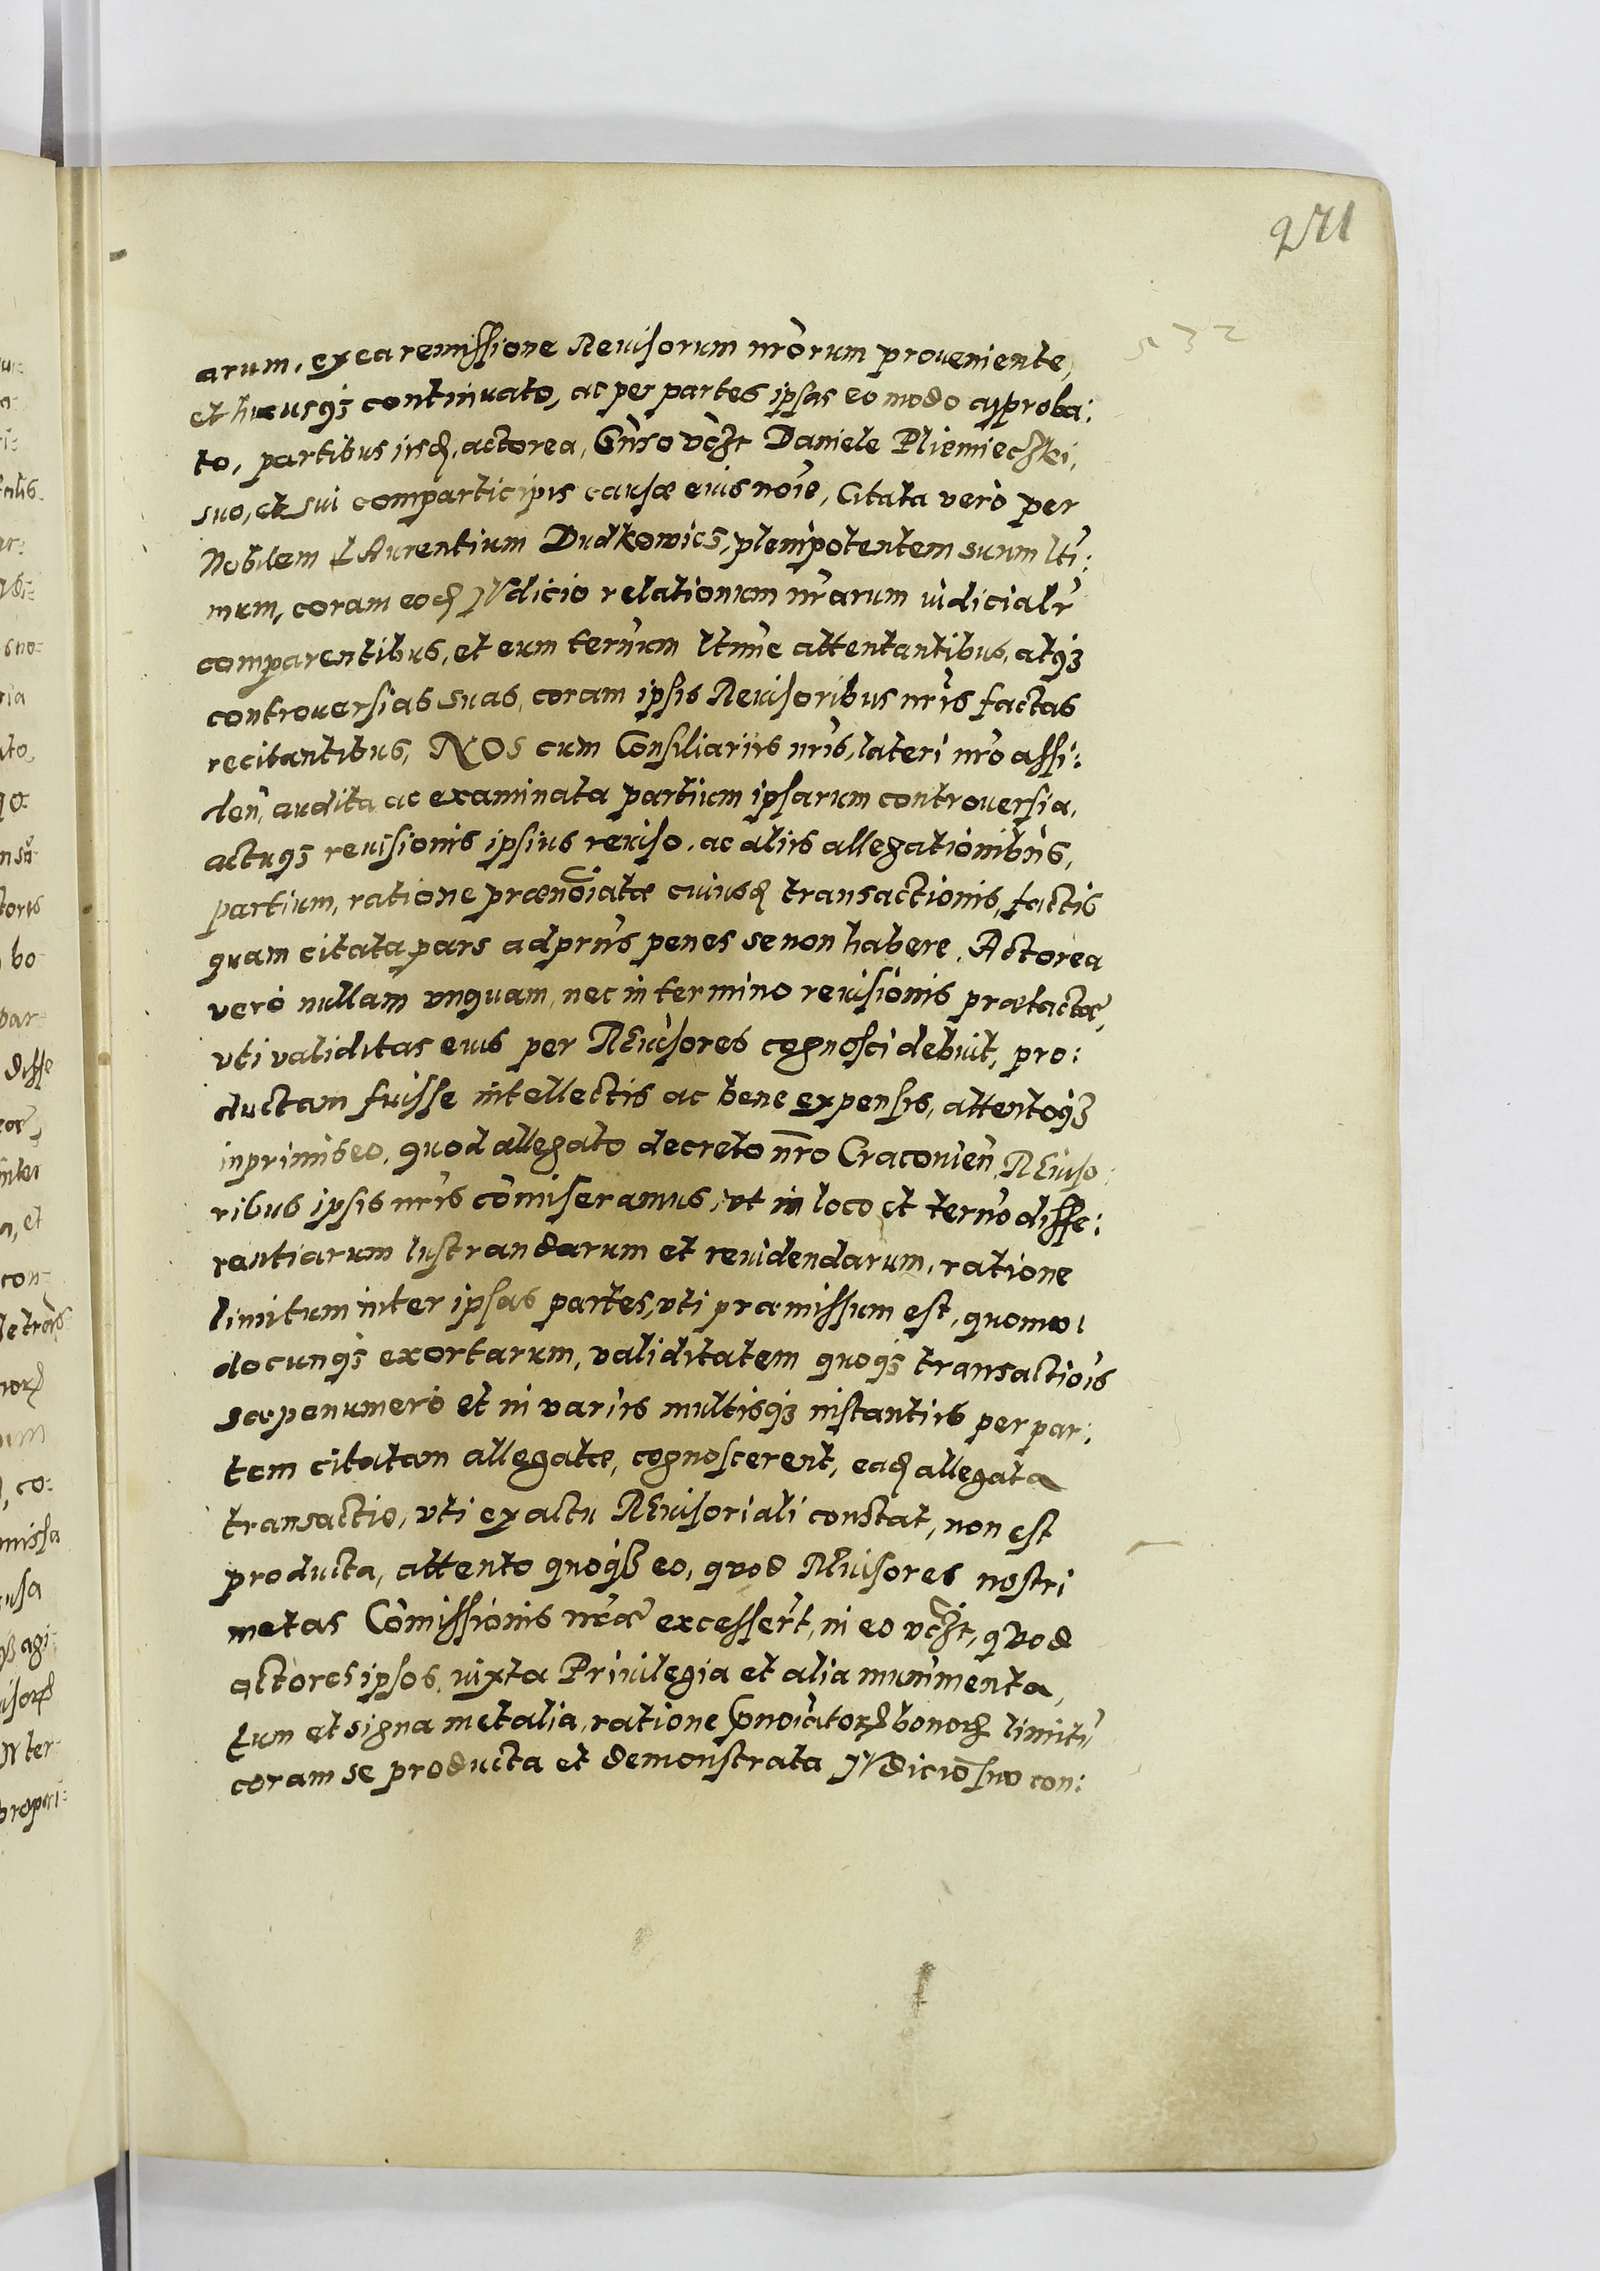 271
arum, ex ea remissione Reuisorum nrõrum proueniente,
et hucusqȝ continuato, ac per partes ipsas eo modo approba:
to, partibus iisd, actorea, Gnso vczt Daniele Pliemieczki,
suo, et sui comparticipis causæ eius noie, Citata verò per
Nobilem LAurentium Dudkowicz, plenipotentem suum lti:
mum, coram eod JVdicio relationum nrarum iudicialr
comparentibus, et eum terium ltime attentantibus, atqȝ
controuersias suas, coram ipsis Reuisoribus nris factas
recitantibus, NOS cum Consiliariis nris, lateri nro assi:
den, audita ac examinata partium ipsarum controuersia,
actuqȝ reuisionis ipsius reuiso, ac aliis allegationibus,
partium, ratione prænoiatæ cuiusd transactionis, factis
quam citata pars ad prns penes se non habere, Actorea
verò nullam vnquam, nec in termino reuisionis prætactæ,
vti validitas eius per REuisores cognosci debuit, pro:
ductam fuisse intellectis ac bene expensis, attentoqȝ
inprimis eo, quod allegato decreto nro Cracouien, REuiso:
ribus ipsis nris comiseramus, vt in loco et terno diffe:
rentiarum lustrandarum et reuidendarum, ratione
limitum inter ipsas partes, vti præmissum est, quomo:
docunqȝ exortarum, validitatem quoqȝ transactiois
sæpenumerò et in variis multisqȝ instantiis per par:
tem citatam allegatæ, cognoscerent, ead allegata
transactio, vti ex actu REuisoriali constat, non est
producta, attento quoqȝ eo, quod REuisores nostri
metas Comissionis nræ excessert, in eo vczt, quod
actores ipsos, iuxta Priuilegia et alia munimenta,
tum et signa metalia, ratione pnoiator bonor limitu
coram se producta et demonstrata JVdicio suo con: